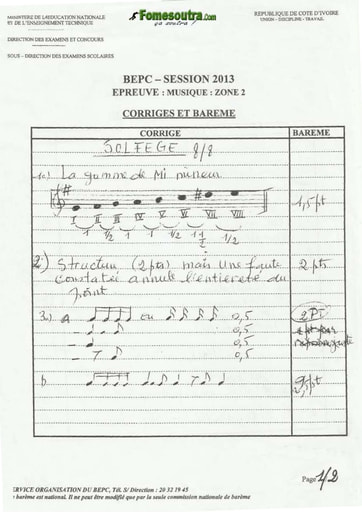 Fomesoutra.com
ça soutra !
MINISTERE DE L'EDUCATION NATIONALE
ET DE L'ENSEIGNEMENT TECHNIQUE
REPUBLIQUE DE COTE D'IVOIRE
UNION – DISCIPLINE - TRAVAIL
DIRECTION DES EXAMENS ET CONCOURS
SOUS – DIRECTION DES EXAMENS SCOLAIRES
BEPC – SESSION 2013
EPREUVE : MUSIQUE : ZONE 2
CORRIGES ET BAREME
CORRIGE BAREME
SOLFEGE 8/8
1°) La gamme de Mi mineur
1,5 pt
I II III IV V VI VII VIII
1 1/2 1 1 1/2 1 1/2 1/2
2°) Structure (2pts) mais une faute 2 pts
constatée annule l'entièreté du
point
3°) a ou 0,5 2 PT
- 0,5
- 0,5
- 0,5
b
SERVICE ORGANISATION DU BEPC, Tél. S/ Direction : 20 32 19 45
barème est national. Il ne peut être modifié que par la seule commission nationale de barème
Page 1/2